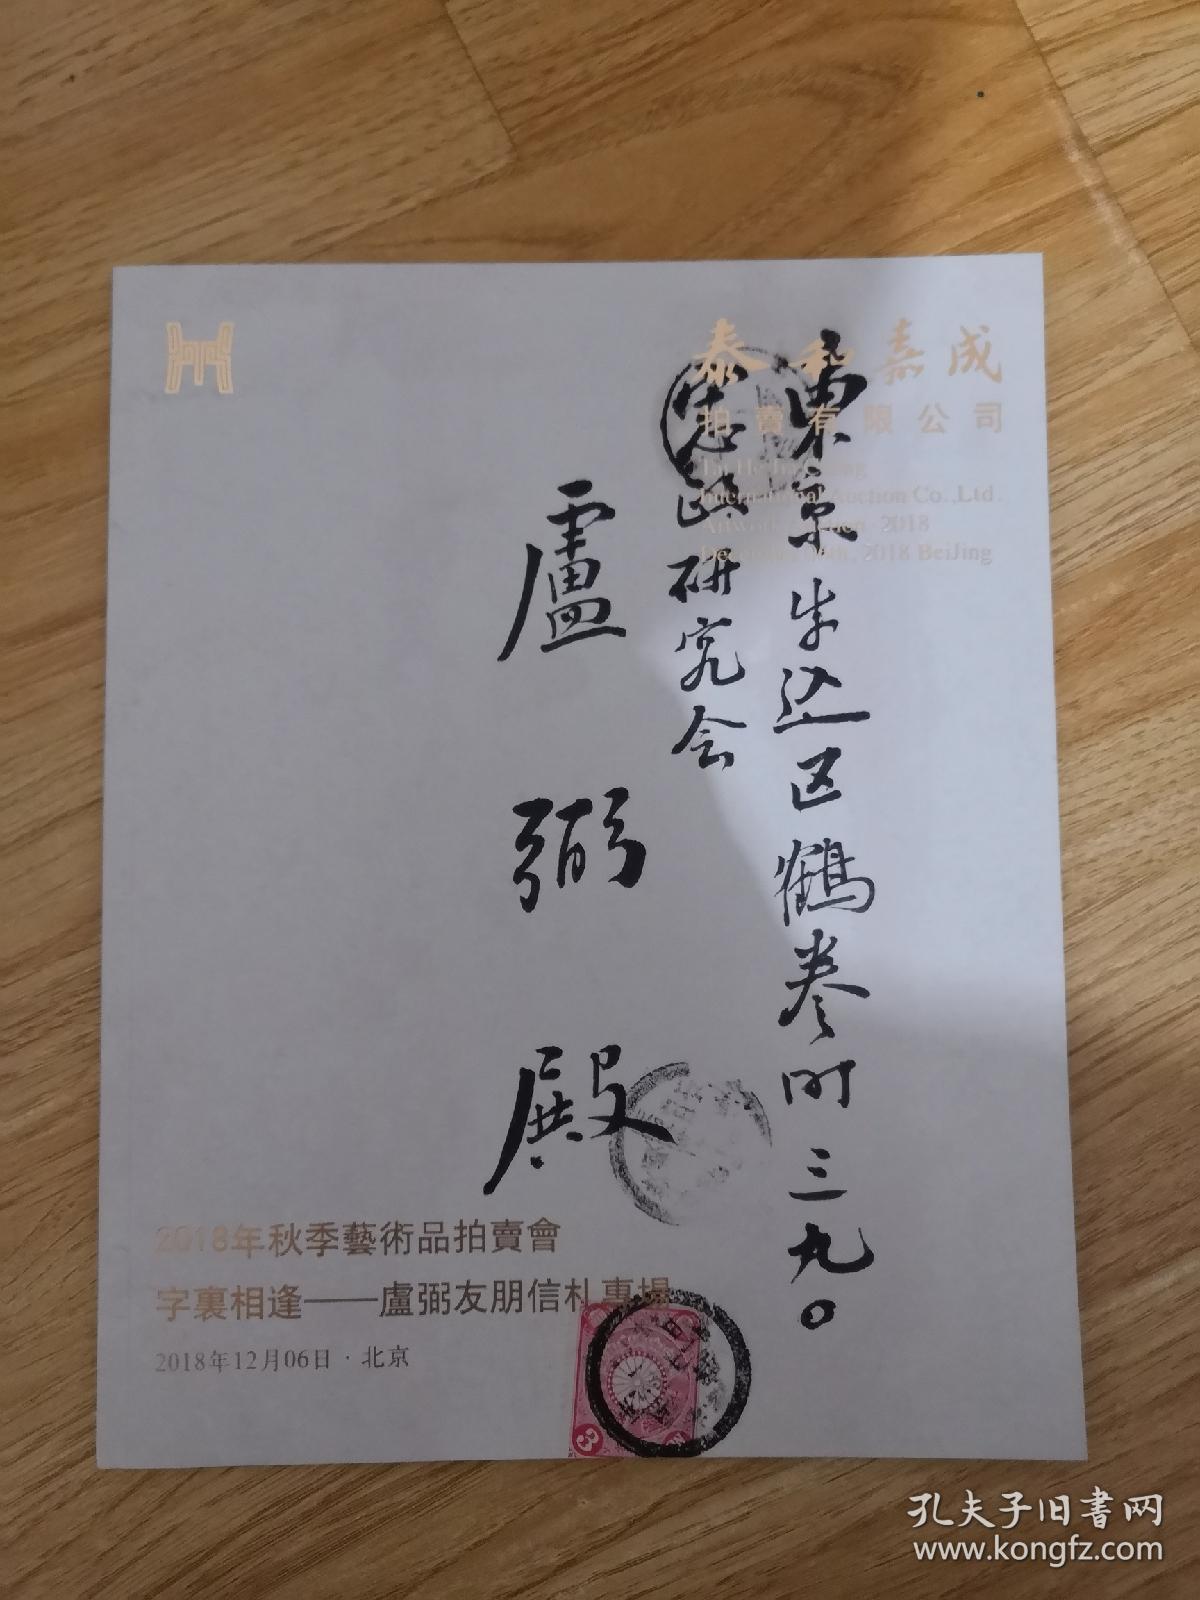 泰和嘉成
拍賣有限公司
Tai He Jia Cheng
International Auction Co.,Ltd.
2018
December 06th, 2018 BeiJing
東京牛込区鶴巻町三九〇
研究会
盧弼殿
2018年秋季藝術品拍賣會
字裏相逢——盧弼友朋信札專場
2018年12月06日·北京
3
孔夫子旧书网
www.kongfz.com